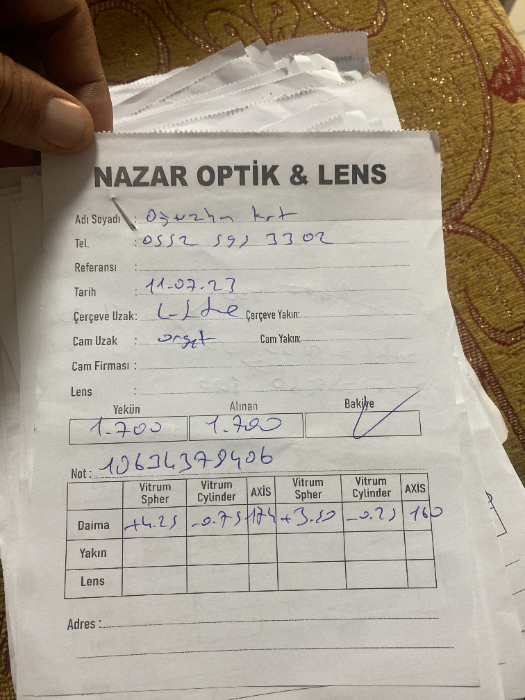 NAZAR OPTİK & LENS
Adı Soyadı : Oğuzhn krt
Tel. : 0552 591 3302
Referansı :
Tarih : 11.07.23
Çerçeve Uzak: Çerçeve Yakın:
Cam Uzak : Cam Yakın:
Cam Firması :
Lens :
Yekün Alınan Bakiye
1.700 1.700
Not : 10634379406
Vitrum Spher Vitrum Cylinder AXİS Vitrum Spher Vitrum Cylinder AXİS
Daima +4.25 -0.75 174 +3.50 -0.25 160
Yakın
Lens
Adres :